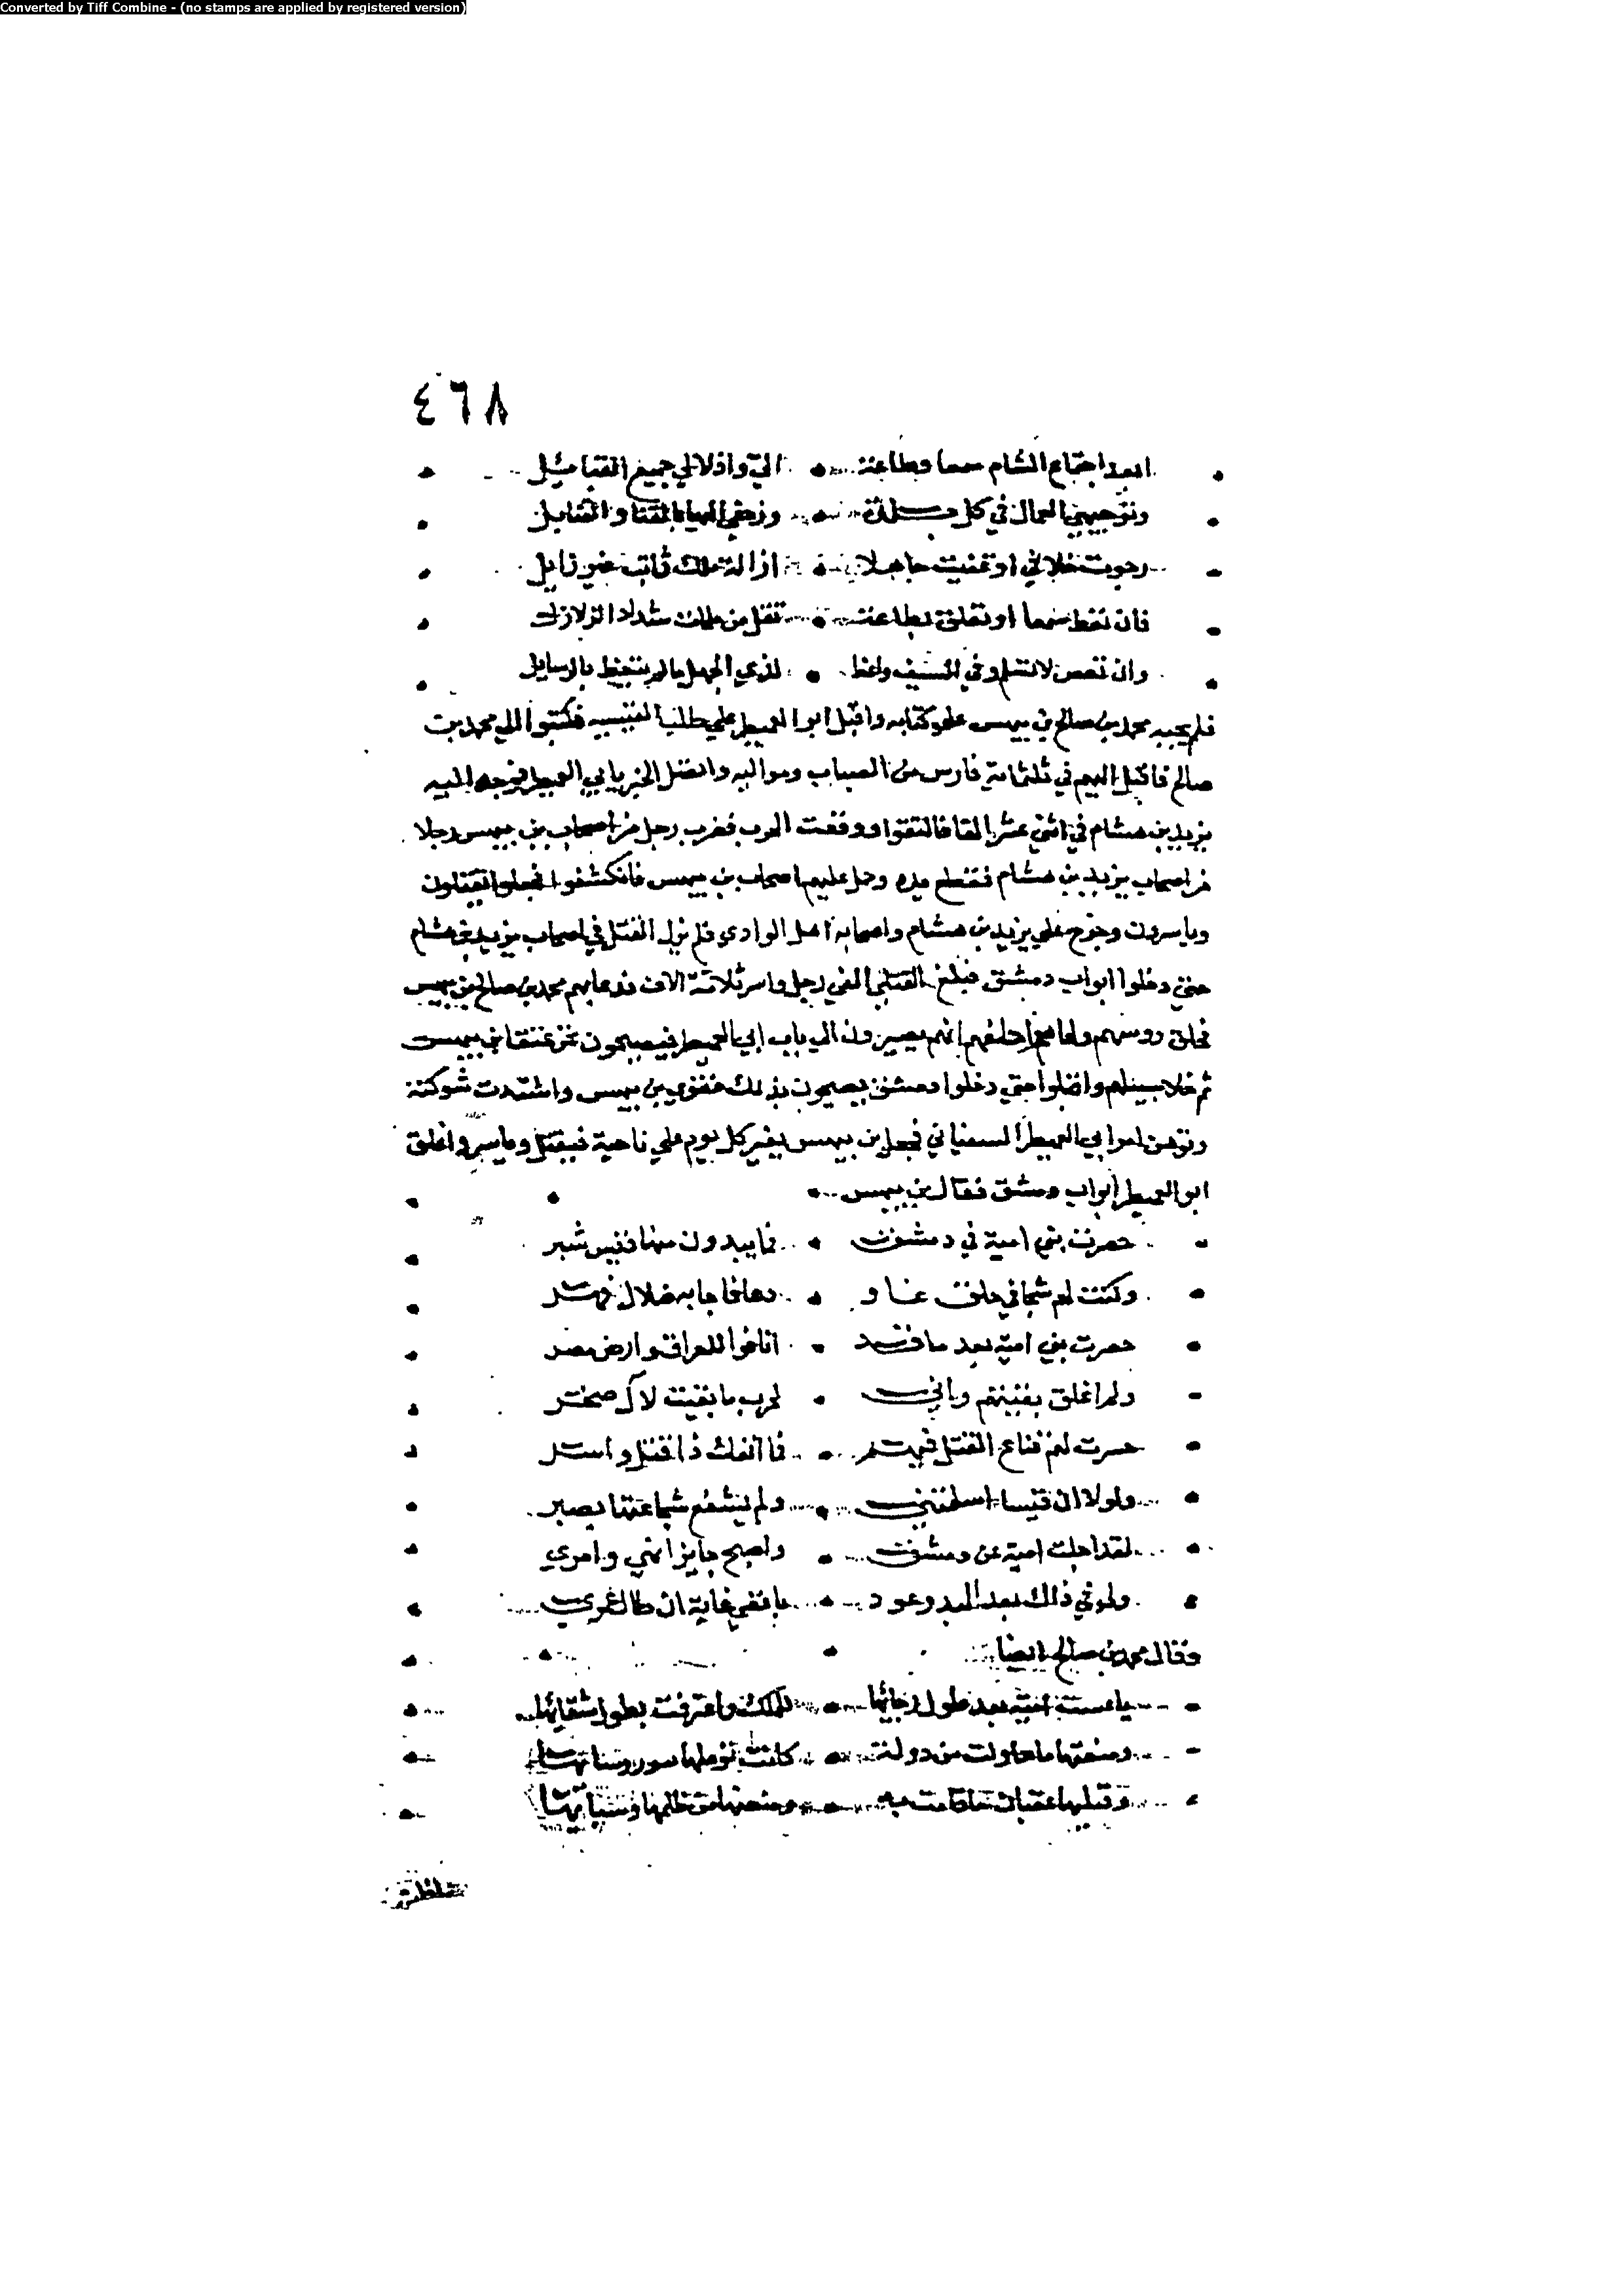 Converted by Tiff Combine - (no stamps are applied by registered version)
٤٦٨
ابعد اجتماع الشام سمعا وطاعة الي واذلالي جميع القبايل
وتوجيهي العمال في كل بلدة وزحفي اليها بالقنا والقنابل
رجوت خلافي او تمنيت جاهلا ازالة ملك ثابت غير زايل
فان تعط سمعا او تعلق بطاعة من شداد الزلازل
وان تعص لا تسلم وفي السيف واعظ لذي الجهل ما لم يتعظ بالرسايل
فلم يجبه محمد بن صالح بن بيهس على كتابه واقبل ابو العميطر على طلب القيسيه فكتبوا الى محمد بن
صالح فاقبل اليهم في ثلثماية فارس من الضباب ومواليه واتصل الخبر بابي العميطر فوجه اليه
يزيد بن هشام في اثني عشر الفا فالتقوا ووقعت الحرب فضرب رجل من اصحاب بن بيهس رجلا
من اصحاب يزيد بن هشام فقطع يده وحمل عليهم اصحاب بن بيهس فانكشفوا فجعلوا يقتلون
وياسرون وخرج على يزيد بن هشام واصحابه اهل الوادي فلم يزل القتل في اصحاب يزيد بن هشام
حتى دخلوا ابواب دمشق فبلغ القتلى الفي رجل واسر ثلاثة الاف فدعا بهم محمد بن صالح بن بيهس
فحلق رووسهم ولحاهم واحلفهم انهم يصيرون الى باب ابي العميطر فيصيحون نحن عتقا بن بيهس
ثم خلا سبيلهم واقبلوا حتى دخلوا دمشق يصيحون بذلك فقوي بن بيهس واشتدت شوكته
وتوهن امر ابي العميطر السفياني فجعل بن بيهس يغير كل يوم على ناحية فيقتل وياسر واغلق
ابو العميطر ابواب دمشق فقال بن بيهس
حصرت بني امية في دمشق فما يبدون منها قيس شبر
وكنت لهم شجا في حلق غاو دعا فاجابه ضلال فهر
حصرت بني امية بعد ما قد اناخوا للعراق وارض مصر
ولم اغلق بفتنتهم واني لحرب ما بقيت لال صخر
حسرت لهم قناع القتل فيهم فما انفك ذا قتل واسر
ولولا ان قيسا اسلمتني ولم يشفع شجاعتها بصبر
لقد اجلت امية عن دمشق واصبح جايزا نهيي وامري
ولي في ذلك بعد البدو عود ما بقي غاية ان طال عمري
وقال محمد بن صالح ايضا
يا ست امية بعد طول رجائها للملك واعترفت بطول شقائها
ومنعتها ما حاولت من دولة كانت توملها